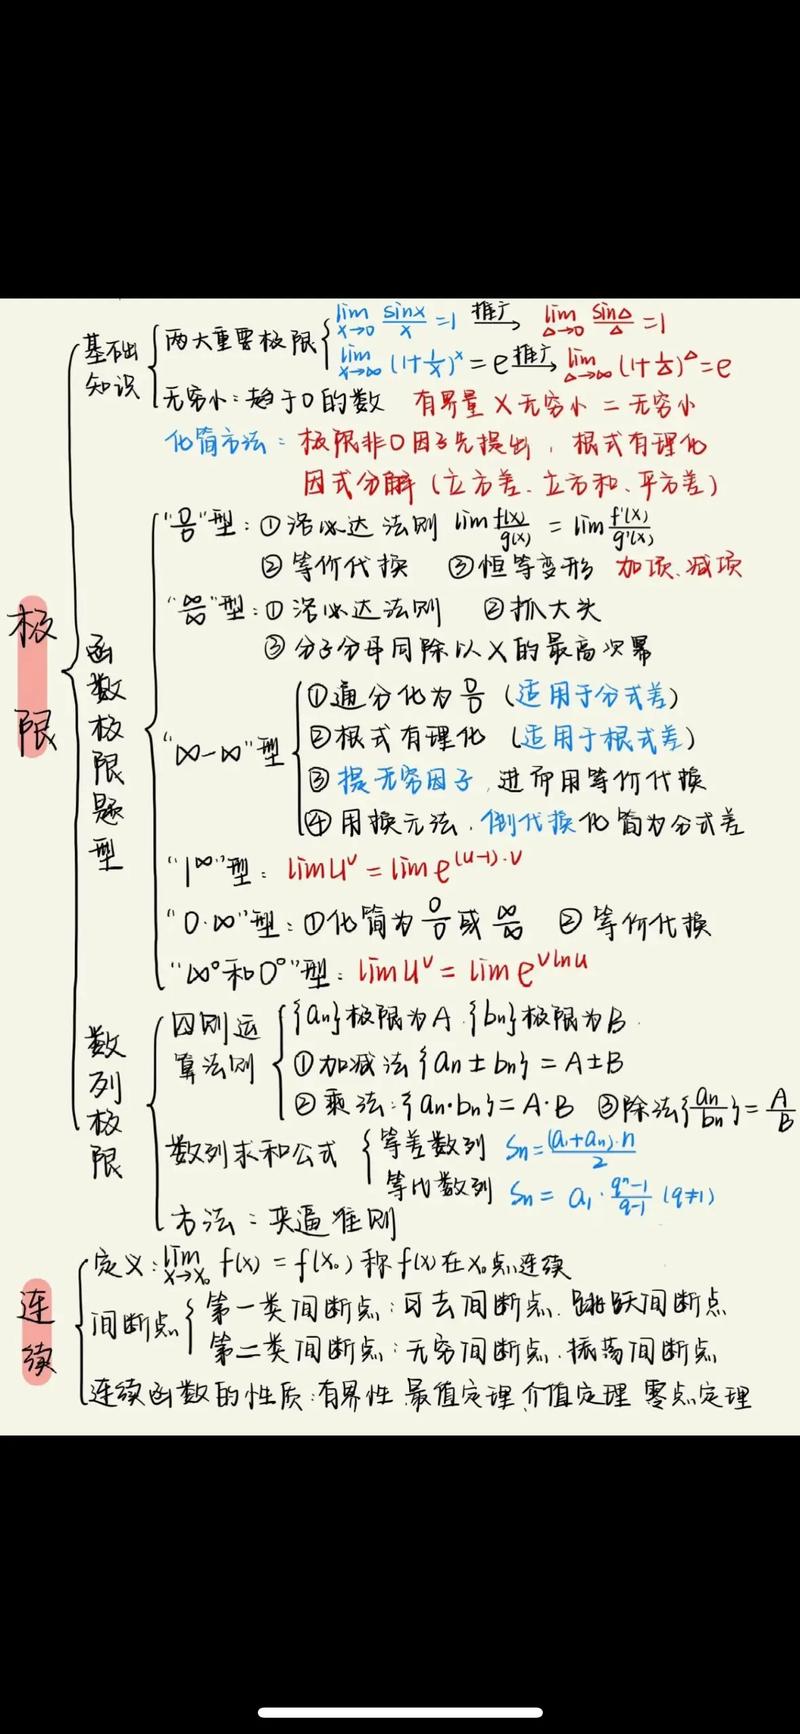 极限
基础知识
两大重要极限
lim x→0 sinx/x =1 推广→ lim △→0 sin△/△ =1
lim x→∞ (1+1/x)^x = e 推广→ lim △→∞ (1+1/△)^△ = e
无穷小:趋于0的数 有界量×无穷小=无穷小
化简方法:极限非0因子先提出,根式有理化
因式分解(立方差、立方和、平方差)
函数极限题型
"0/0"型:①洛必达法则 lim f(x)/g(x) = lim f'(x)/g'(x)
②等价代换 ③恒等变形 加项、减项
"∞/∞"型:①洛必达法则 ②抓大头
③分子分母同除以X的最高次幂
"∞-∞"型
①通分化为0/0(适用于分式差)
②根式有理化(适用于根式差)
③提无穷因子,进而用等价代换
④用换元法,倒代换化简为分式差
"1^∞"型:lim u^v = lim e^(u-1)·v
"0·∞"型:①化简为0/0或∞/∞ ②等价代换
"∞^0和0^0"型:lim u^v = lim e^vlnu
数列极限
四则运算法则
{an}极限为A.{bn}极限为B.
①加减法{an±bn}=A±B
②乘法:{an·bn}=A·B ③除法{an/bn}=A/B
数列求和公式
等差数列 Sn=(a1+an)·n/2
等比数列 Sn= a1·(q^n-1)/(q-1) (q≠1)
方法:夹逼准则
连续
定义:lim x→x₀ f(x)=f(x₀)称f(x)在x₀点连续
间断点
第一类间断点:可去间断点、跳跃间断点
第二类间断点:无穷间断点、振荡间断点
连续函数的性质:有界性 最值定理 介值定理 零点定理